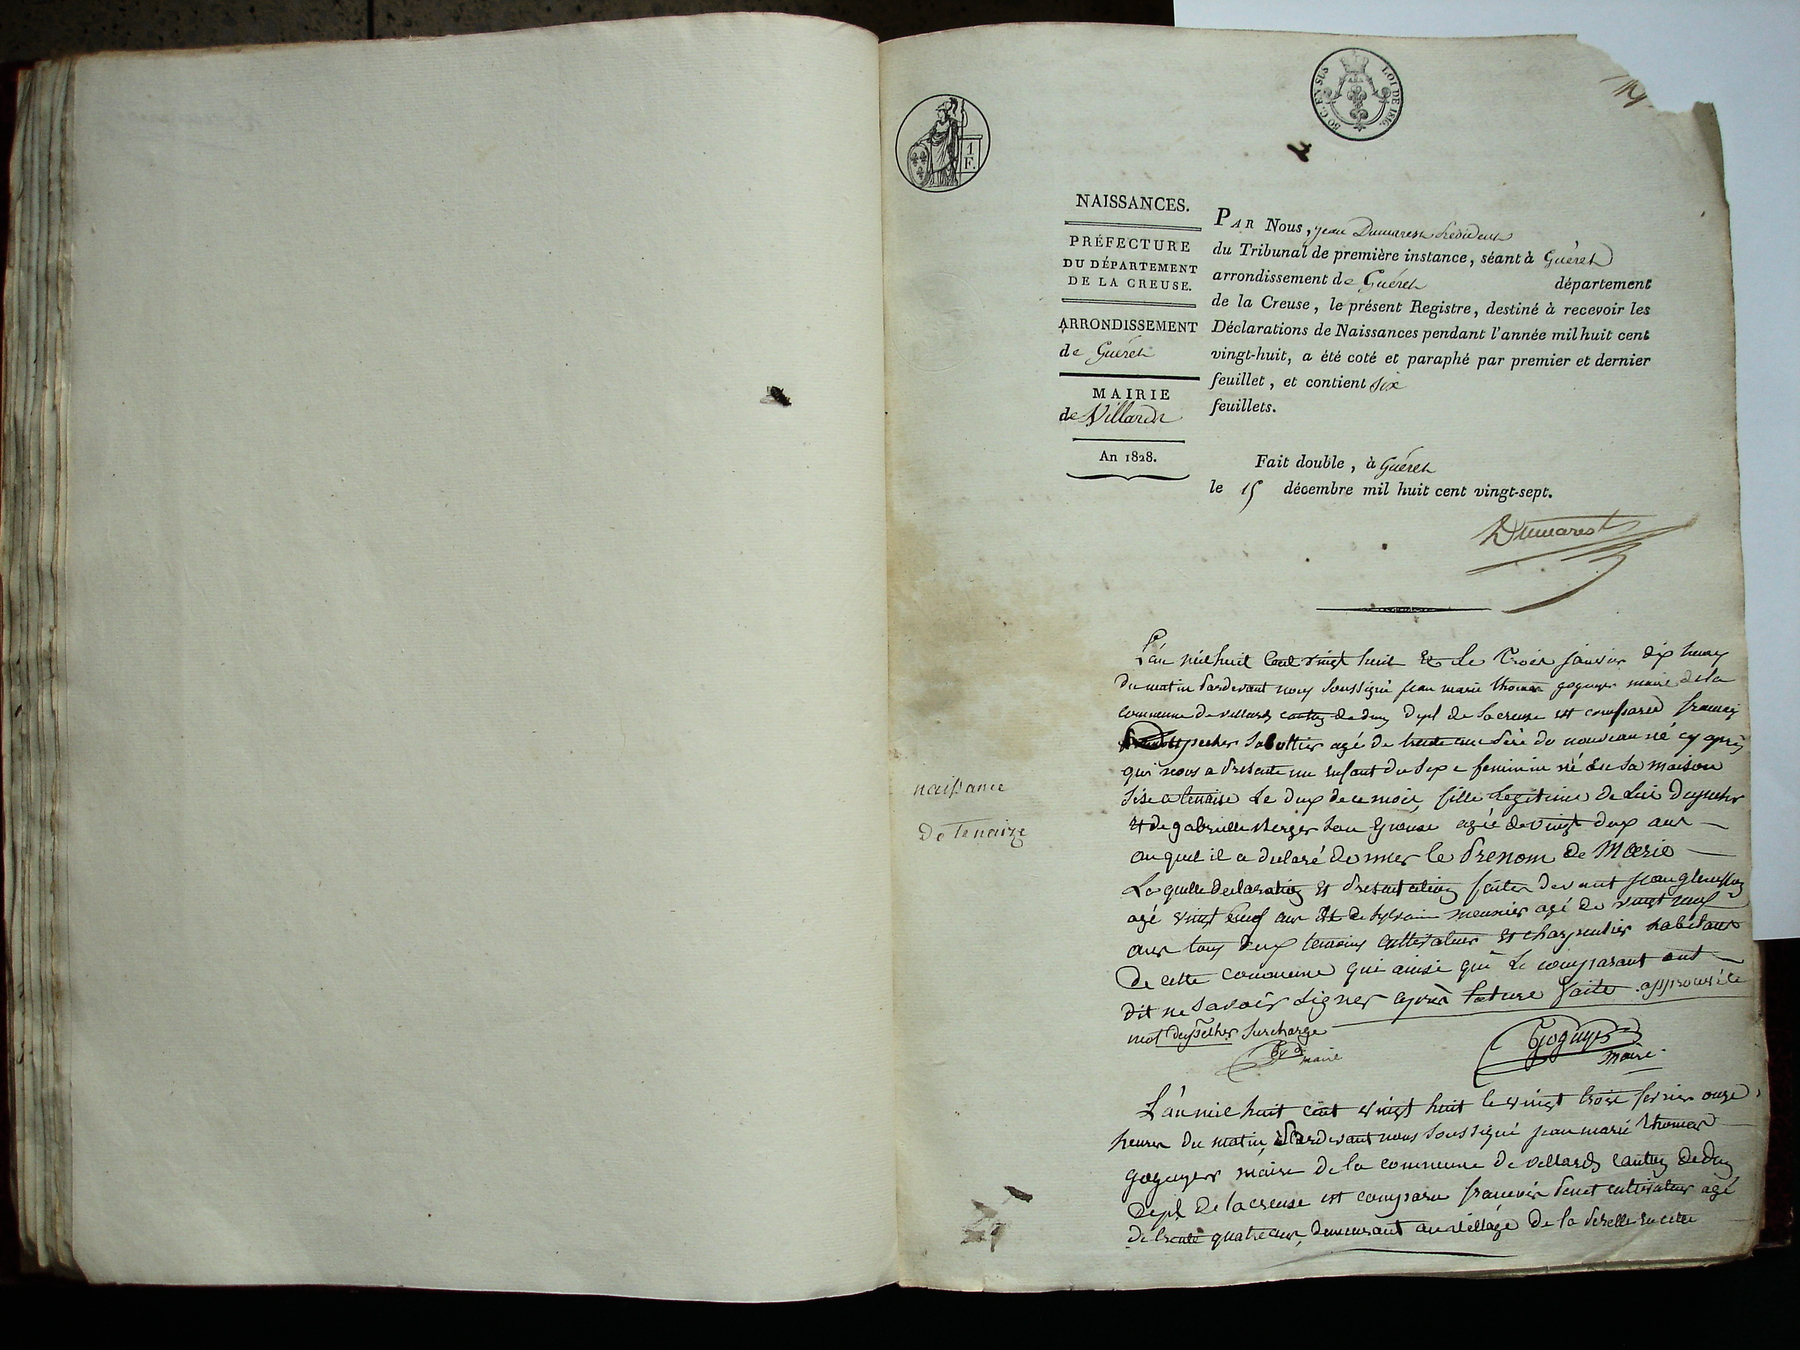 80 C. EN SUS
LOI DE 1816.
1
F.
NAISSANCES.
PRÉFECTURE
DU DÉPARTEMENT
DE LA CREUSE.
ARRONDISSEMENT
de Guéret
MAIRIE
de Villard
An 1828.
PAR Nous, jean Dumarest Président
du Tribunal de première instance, séant à Guéret
arrondissement de Guéret département
de la Creuse, le présent Registre, destiné à recevoir les
Déclarations de Naissances pendant l'année mil huit cent
vingt-huit, a été coté et paraphé par premier et dernier
feuillet, et contient six
feuillets.
Fait double, à Guéret
le 15 décembre mil huit cent vingt-sept.
Dumarest
naissance
De tenaize
L'an mil huit cent vingt huit et le trois janvier dix heures
du matin pardevant nous soussigné jean marie thomas goguyer maire de la
commune de villards canton de dun dept de la creuse est comparu françois
sabottier agé de trente ans père du nouveau né cy après
qui nous a présenté un enfant du sexe feminin né en sa maison
sise a tenaise le deux de ce mois, fille legitime de lui dupecher
et de gabrielle berger son epouse agée de vingt deux ans
auquel il a declaré donner le prenom de Marie
La quelle declaration et presentation faites devant jean
agé vingt neuf ans et de sylvain meunier agé de vingt neuf
ans tous deux temoins cultivateur et charpentier habitans
de cette commune qui ainsi que le comparant ont
dit ne savoir signer après lecture faite approuvé le
mot dupecher surchargé
maire
Goguyer
maire
L'an mil huit cent vingt huit le vingt trois fevrier onze
heures du matin, Pardevant nous soussigné jean marie thomas
goguyer maire de la commune de villards canton de dun
dept de la creuse est comparu françois penot cultivateur agé
de trente quatre ans, demeurant au village de la en cette